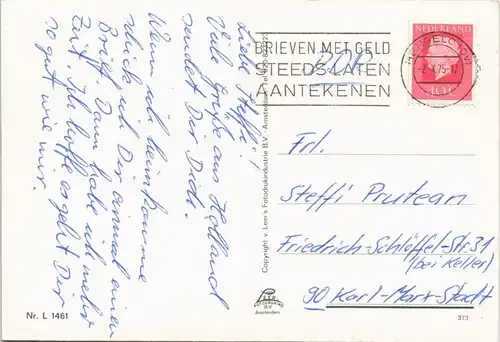 Liebe Steffi!
Viele Grüße aus Holland
sendet Dir Dich.
Wenn ich heimkomme
schick ich Dir einmal einen
Brief. Dann habe ich mehr
Zeit. Ich hoffe es geht Dir
so gut wie mir.
BRIEVEN MET GELD
STEEDS LATEN
AANTEKENEN
HENGELO (OV)
-2.X.75-17
NEDERLAND
40c
Copyright v. Leer's Fotodrukindustrie B.V. Amsterdam
Frl.
Steffi Prutean
Friedrich-Schlöffel-Str. 31
(bei Keller)
90 Karl-Marx-Stadt
Nr. L 1461
B.V.
Amsterdam
373